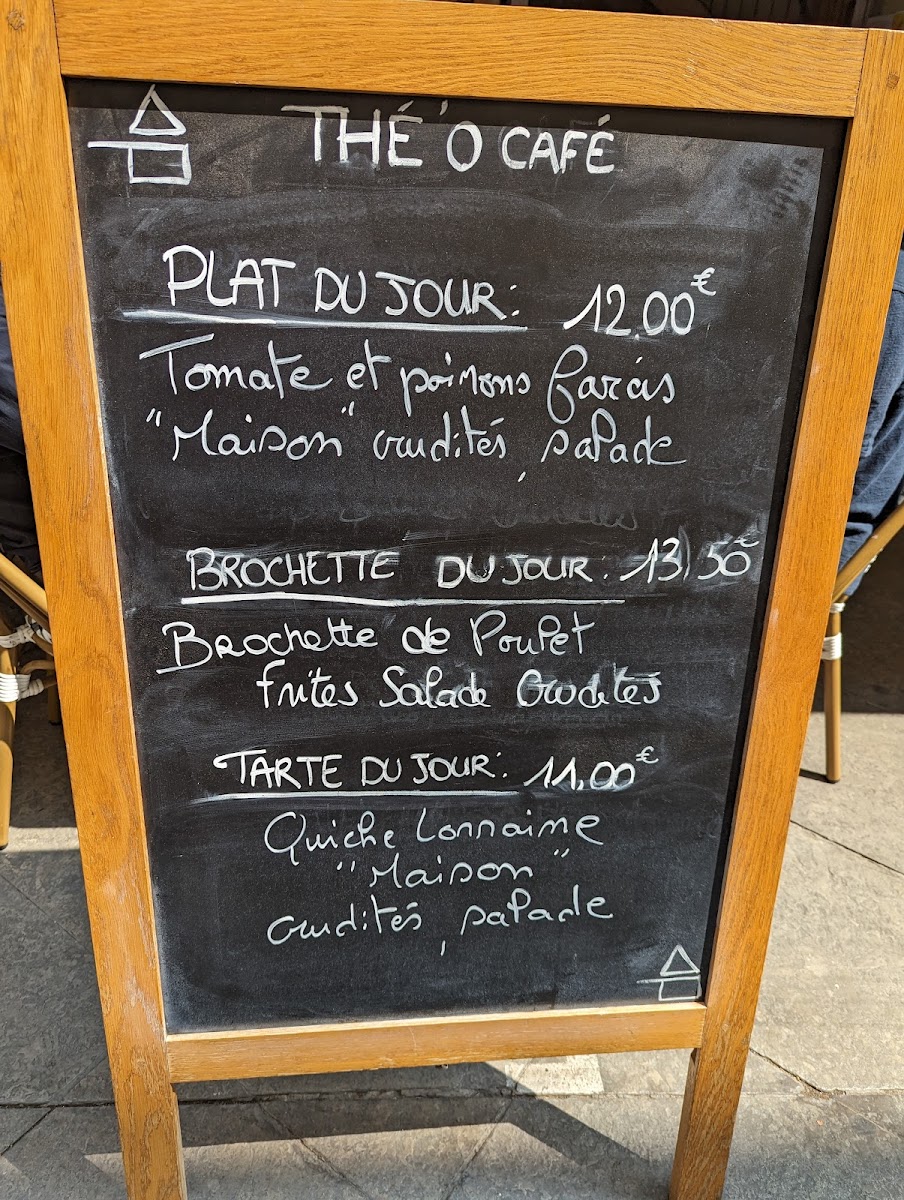 THÉ'O CAFÉ
PLAT DU JOUR: 12.00€
Tomate et poivrons farcis
"Maison" crudités, salade
BROCHETTE DU JOUR: 13,50€
Brochette de Poulet
frites Salade Crudités
TARTE DU JOUR: 11,00€
Quiche Lorraine
"Maison"
crudités, salade